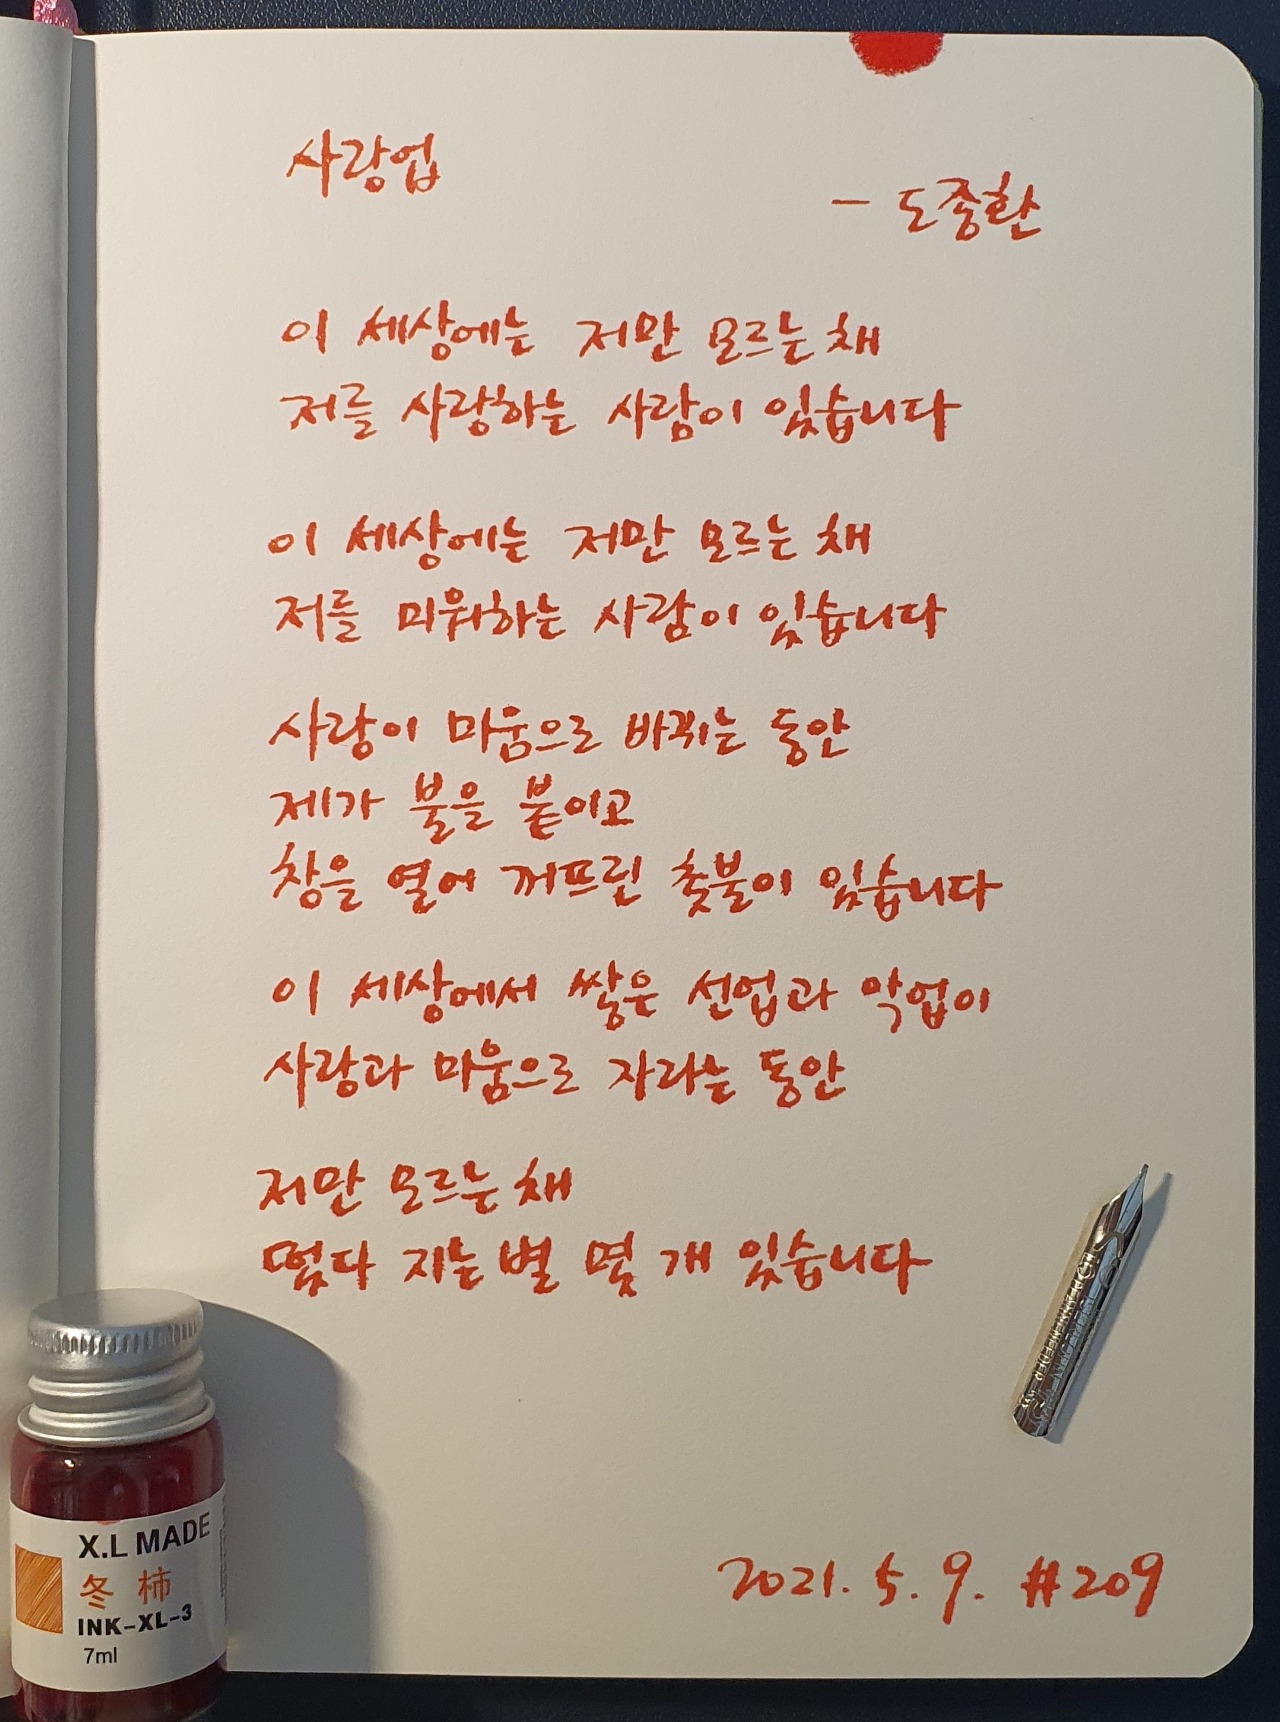 사랑업
- 도종환
이 세상에는 저만 모르는 채
저를 사랑하는 사람이 있습니다
이 세상에는 저만 모르는 채
저를 미워하는 사람이 있습니다
사랑이 미움으로 바뀌는 동안
제가 불을 붙이고
창을 열어 꺼뜨린 촛불이 있습니다
이 세상에서 쌓은 선업과 악업이
사랑과 미움으로 자라는 동안
저만 모르는 채
떴다 지는 별 몇 개 있습니다
2021. 5. 9. #209
X.L MADE
冬 柿
INK-XL-3
7ml